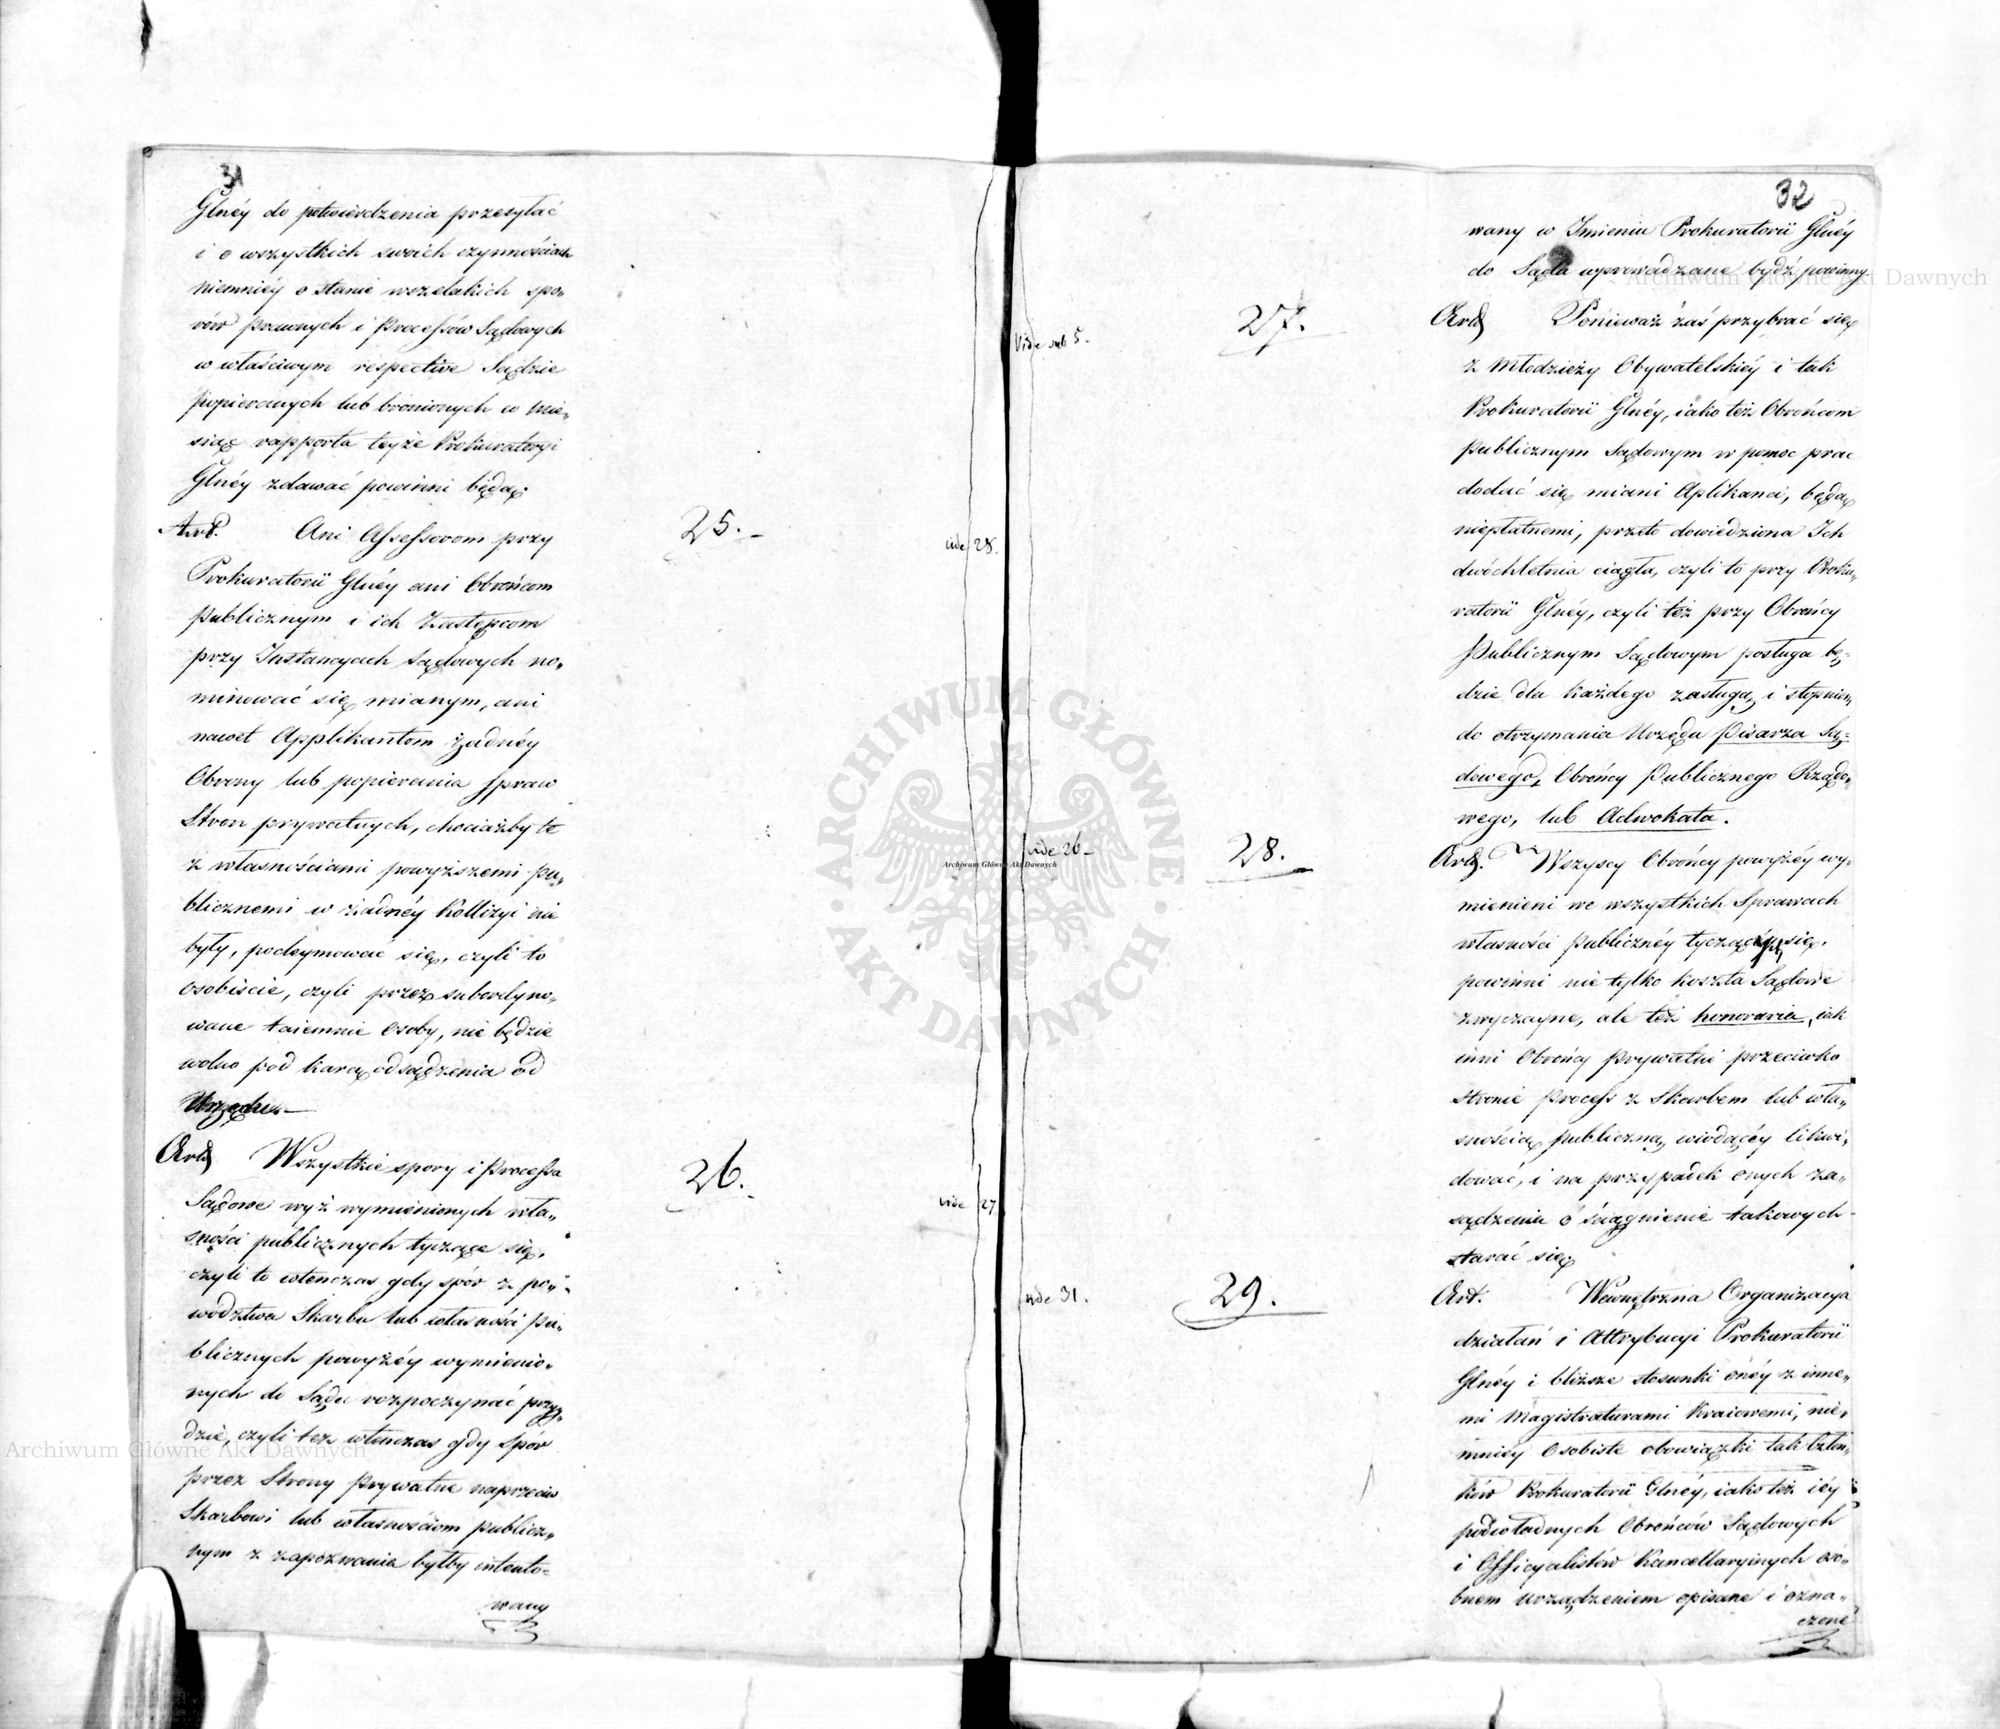 31
Glnéy do potwierdzenia przesyłać
i o wszystkich swoich czynnościach
niemniéy o stanie wszelakich spo„
rów prawnych i Processów Sądowych
w właściwym respective Sądzie
popieranych lub bronionych co mie„
siąc rapporta teyże Prokuratoryi
Glnéy zdawać powinni będą.
Art. 25.
Ani Assessorom przy
vide 28.
Prokuratorii Glnéy ani Obrońcom
publicznym i ich Zastępcom
przy Instancyach Sądowych no„
minować się mianym, ani
nawet Applikantom żadnéy
Obrony lub popierania spraw
Stron prywatnych, chociażby te
z własnościami powyższemi pu„
blicznemi w żadnéy kollizyi nie
były, podeymować się, czyli to
osobiście, czyli przez subordyno„
wane taiemnie osoby, nie będzie
wolno pod karą odsądzenia od
Urzędu.
Art. 26.
Wszystkie spory i Processa
Sądowe wyż wymienionych wła„
vide 27
sności publicznych tyczące się,
czyli to wtenczas gdy spór z po„
wództwa Skarbu lub własności pu„
blicznych powyżéy wymienio„
nych do Sądu rozpoczynać przyy„
dzie, czyli też wtenczas gdy spór
przez Strony Prywatne naprzeciw
Skarbowi lub własnościom publicz„
nym z zapozwania byłby intento„
wany
32
wany w Imieniu Prokuratorii Glnéy
do Sądu wprowadzane bydź powinny.
Art. 27.
Ponieważ zaś przybrać się
vide sub 5.
z Młodzieży Obywatelskiéy i tak
Prokuratorii Glnéy, iako też Obrońcom
publicznym Sądowym w pomoc prac
dodać się miani Aplikanci, będą
niepłatnemi, przeto dowiedziona Ich
dwóchletnia ciągła, czyli to przy Proku„
ratorii Glnéy, czyli też przy Obrońcy
Publicznym Sądowym posługa bę„
dzie dla każdego zasługą, i stopniem
do otrzymania Urzędu Pisarza Są„
dowego, Obrońcy Publicznego Rządo„
wego, lub Adwokata.
Art. 28.
Wszyscy Obrońcy powyżéy wy„
vide 26
mienieni we wszystkich Sprawach
własności publicznéy tyczących się,
powinni nie tylko koszta Sądowe
zwyczayne, ale też honoraria, iak
inni Obrońcy prywatni przeciwko
stronie Process z Skarbem lub wła„
snością publiczną wiodącéy likwi„
dować, i na przypadek onych za„
sądzenia o ściągnienie takowych
starać się
Art. 29.
Wewnętrzna Organizacya
vide 31.
działań i Attrybucyi Prokuratorii
Glnéy i bliższe stosunki onéy z inne„
mi Magistraturami Kraiowemi, nie„
mniéy Osobiste obowiązki tak Człon„
ków Prokuratorii Glnéy, iako też iéy
podwładnych Obrońców Sądowych
i Officyalistów Kancellaryinych oso„
bnem urządzeniem opisane i ozna„
czone
ARCHIWUM GŁÓWNE AKT DAWNYCH
Archiwum Główne Akt Dawnych
Archiwum Główne Akt Dawnych
Archiwum Główne Akt Dawnych